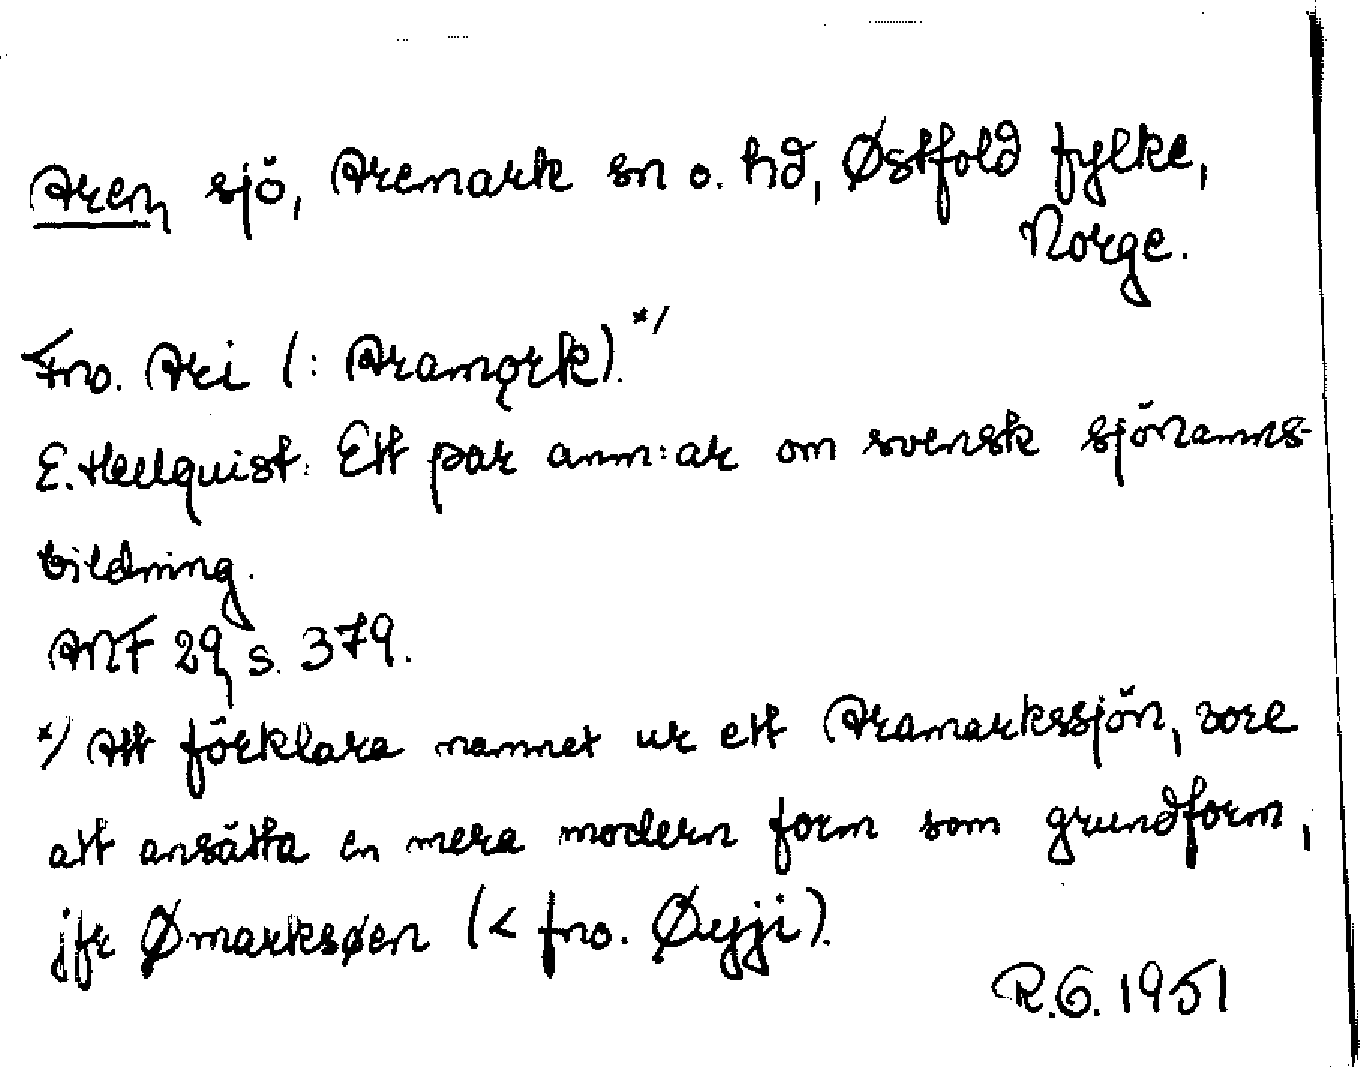 Aren, sjö, Aremark sn o. hd, Østfold fylke,
Norge.
Fno. Ari (: Aramǫrk).*/
E. Hellquist: Ett par anm:ar om svensk sjönamns-
bildning.
ANF 29, s. 379.
*/ Att förklara namnet ur ett Aramarkssjön, vore
att ansätta en mera modern form som grundform,
jfr Ømarksøen (< fno. Øyji).
R.G. 1951